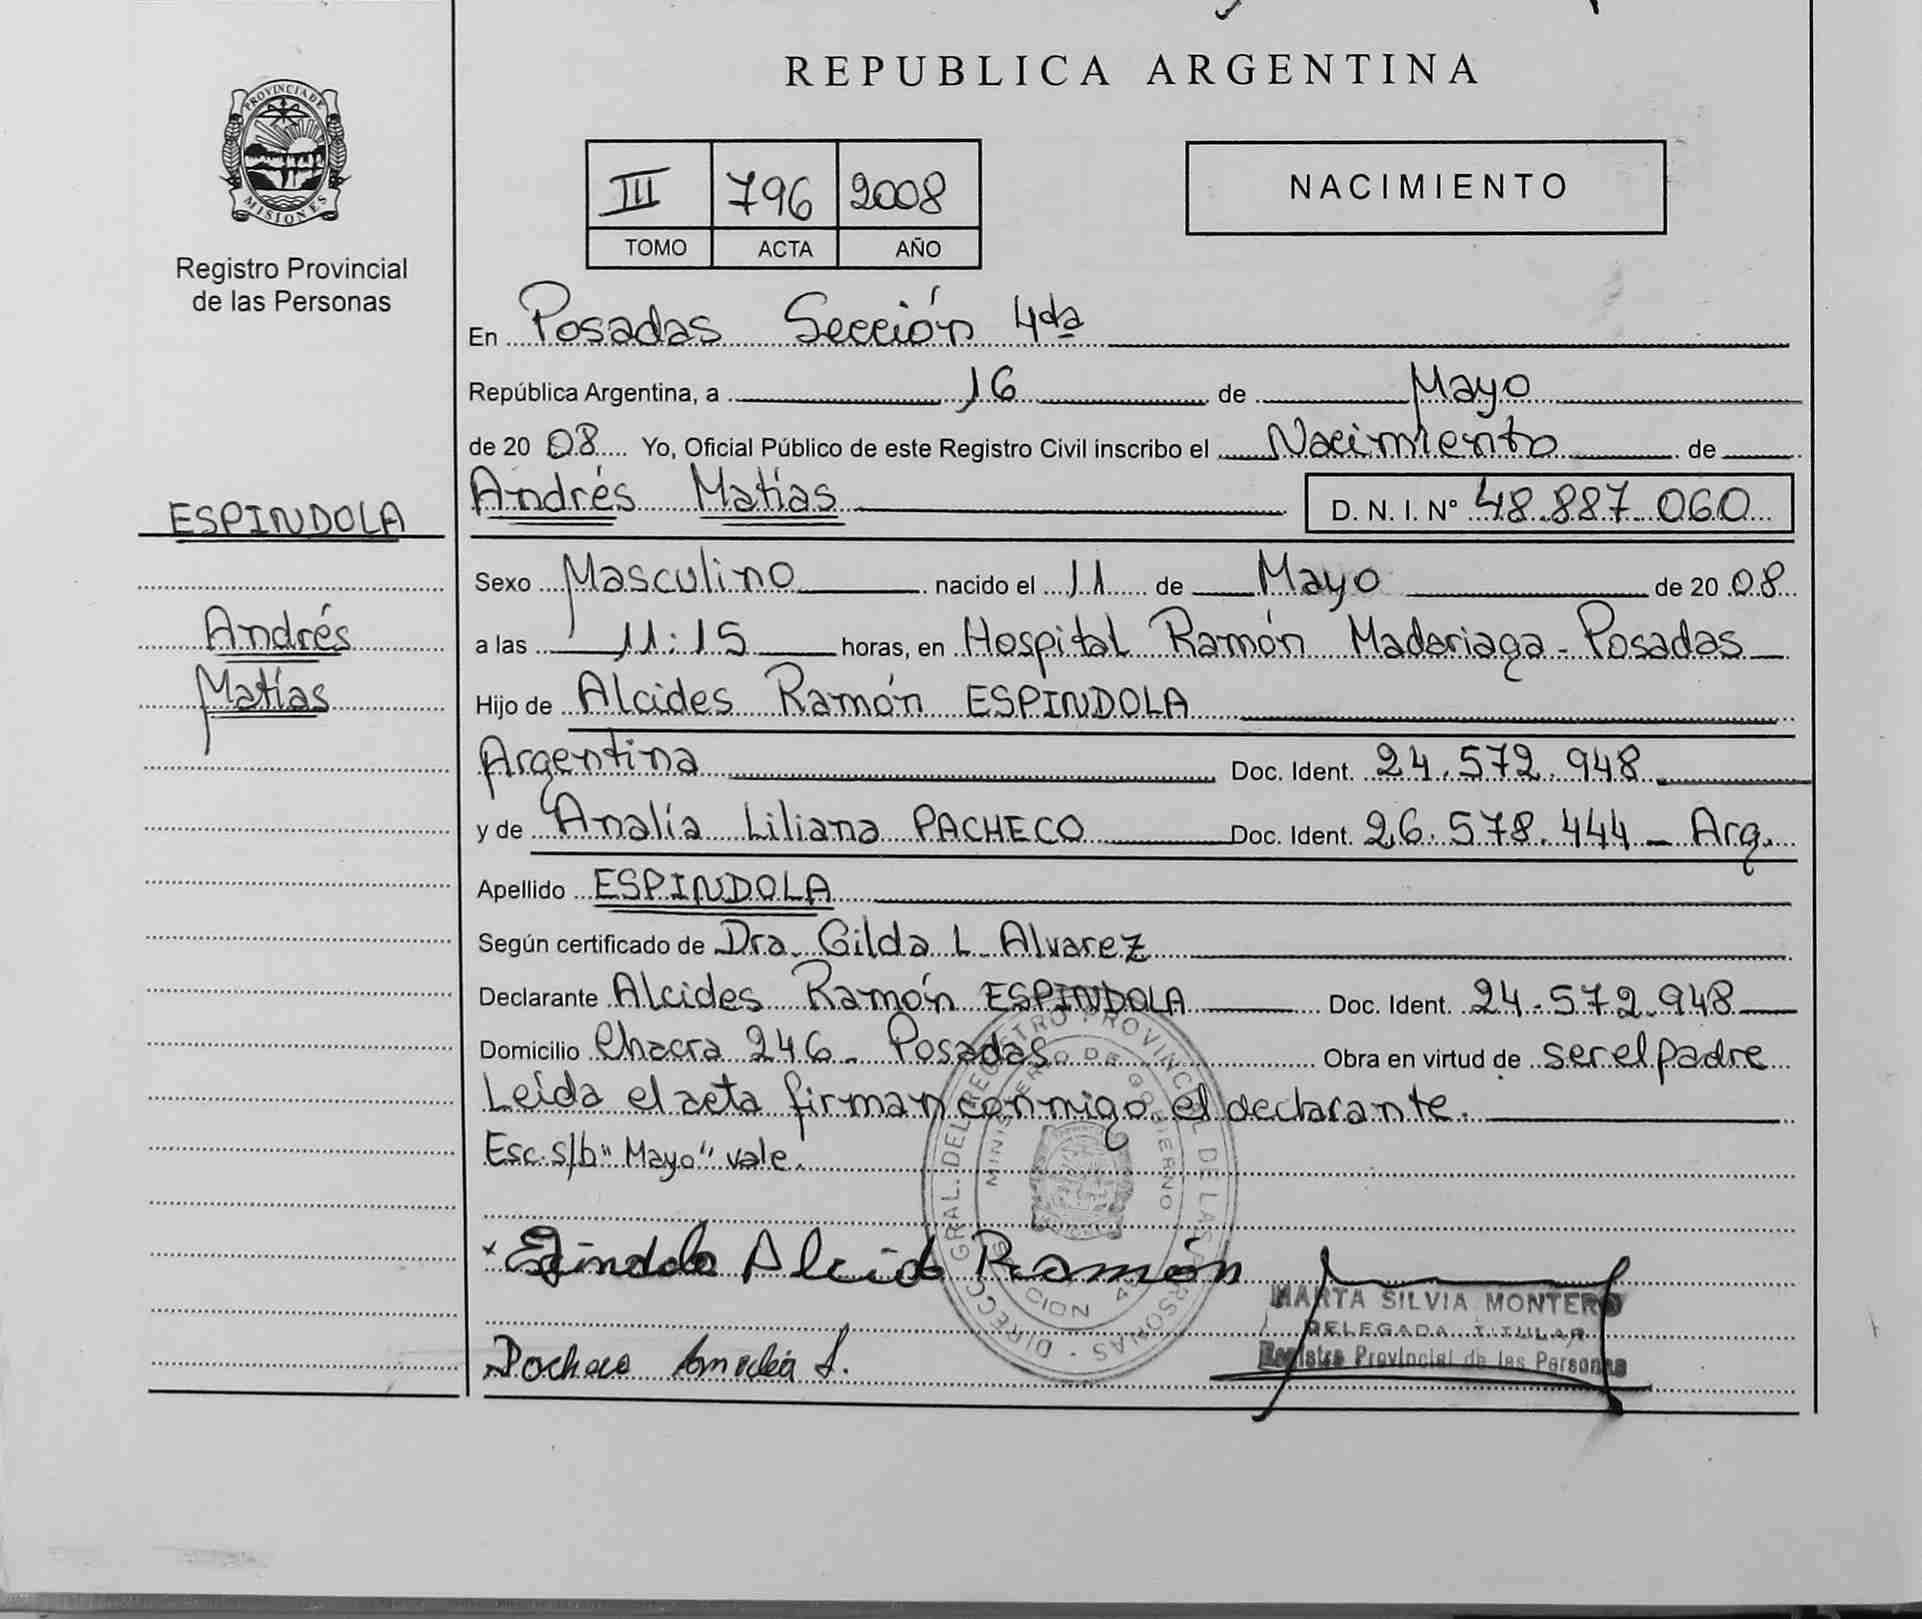 REPUBLICA ARGENTINA
PROVINCIA DE MISIONES
Registro Provincial
de las Personas
III 796 2008
TOMO ACTA AÑO
NACIMIENTO
En Posadas Sección 4da
República Argentina, a 16 de Mayo
de 20 08 Yo, Oficial Público de este Registro Civil inscribo el Nacimiento de
ESPINDOLA
Andrés
Matías
Andrés Matías D. N. I. Nº 48.887.060
Sexo Masculino nacido el 11 de Mayo de 20 08
a las 11:15 horas, en Hospital Ramón Madariaga - Posadas
Hijo de Alcides Ramón ESPINDOLA
Argentina Doc. Ident. 24.572.948
y de Analía Liliana PACHECO Doc. Ident. 26.578.444 - Arg.
Apellido ESPINDOLA
Según certificado de Dra. Gilda L. Alvarez
Declarante Alcides Ramón ESPINDOLA Doc. Ident. 24.572.948
Domicilio Chacra 246 - Posadas Obra en virtud de ser el padre
Leída el acta firman conmigo el declarante.
Esc. s/b "Mayo" vale.
DIRECC. GRAL. DEL REGISTRO PROVINCIAL DE LAS PERSONAS
MINISTERIO DE GOBIERNO
Alcid Ramón
MARTA SILVIA MONTERO
DELEGADA TITULAR
Registro Provincial de las Personas